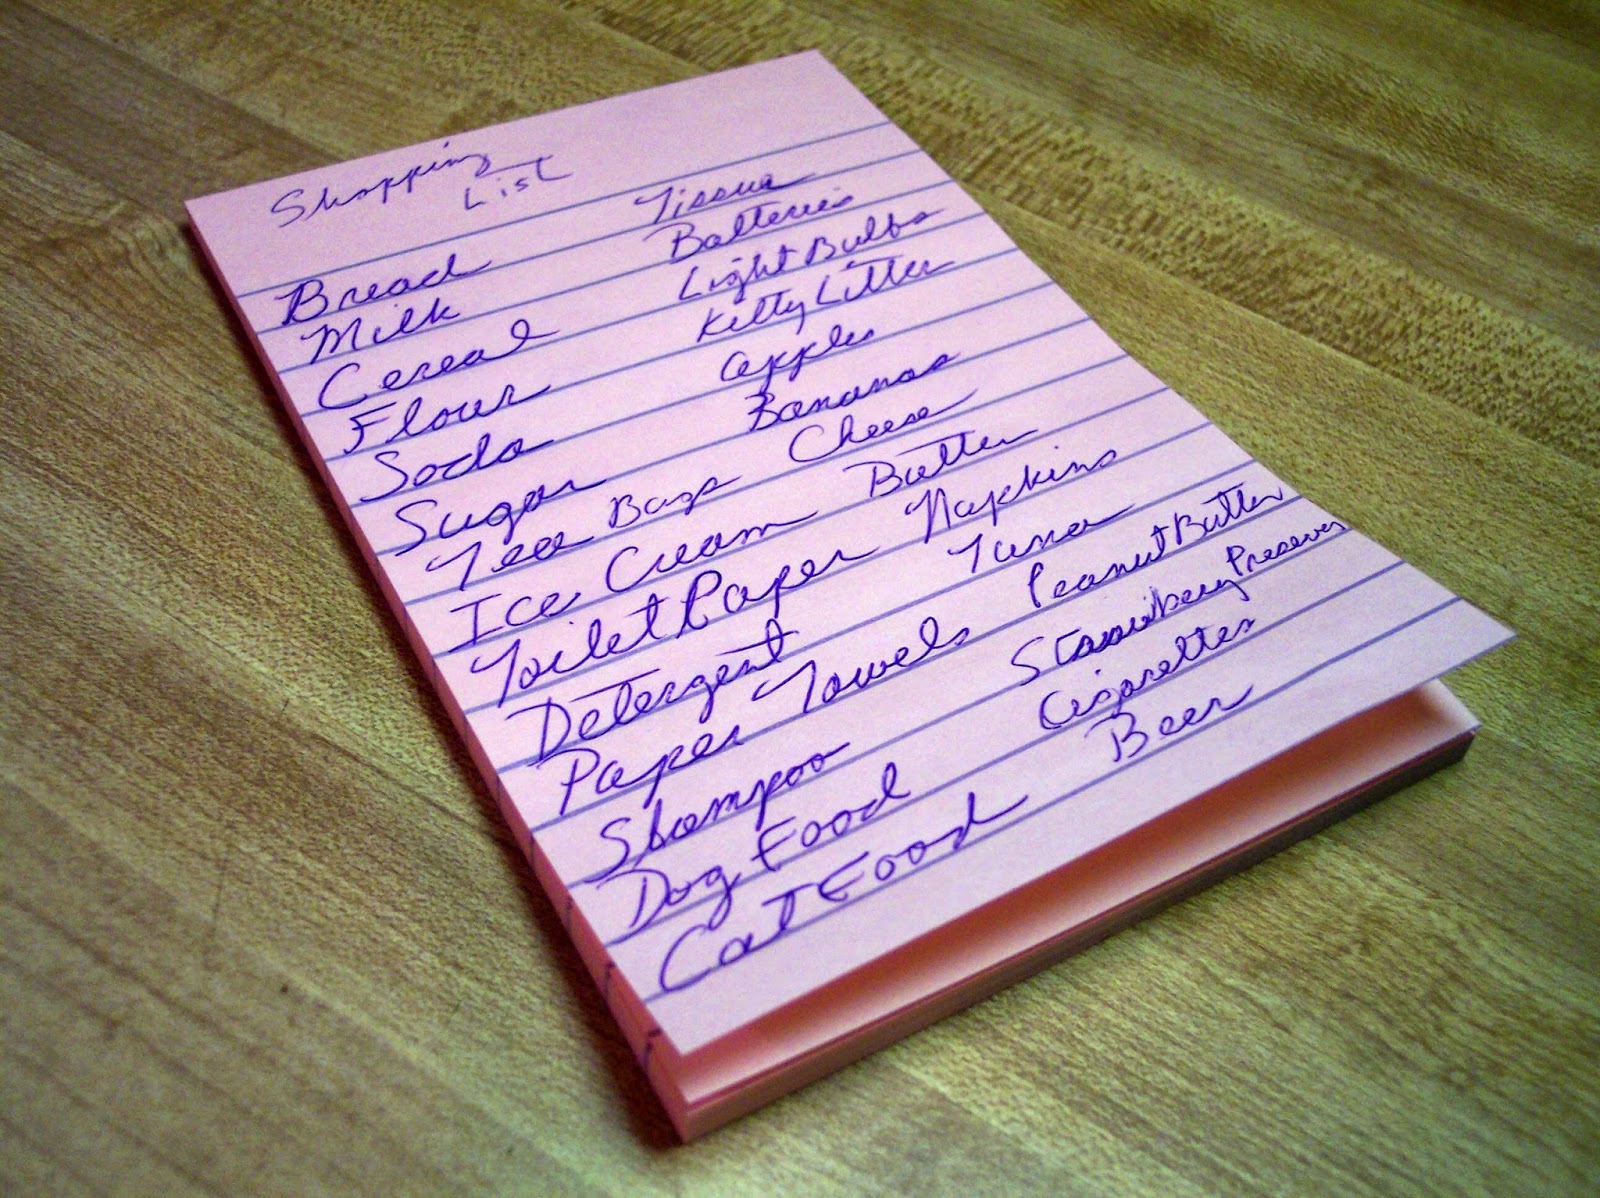 Shopping
List
Bread
Milk
Cereal
Flour
Soda
Sugar
Tea Bags
Ice Cream
Toilet Paper
Detergent
Paper Towels
Shampoo
Dog Food
Cat Food
Tissue
Batteries
Light Bulbs
Kitty Litter
Apples
Bananas
Cheese
Butter
Napkins
Tuna
Peanut Butter
Strawberry Preserves
Cigarettes
Beer